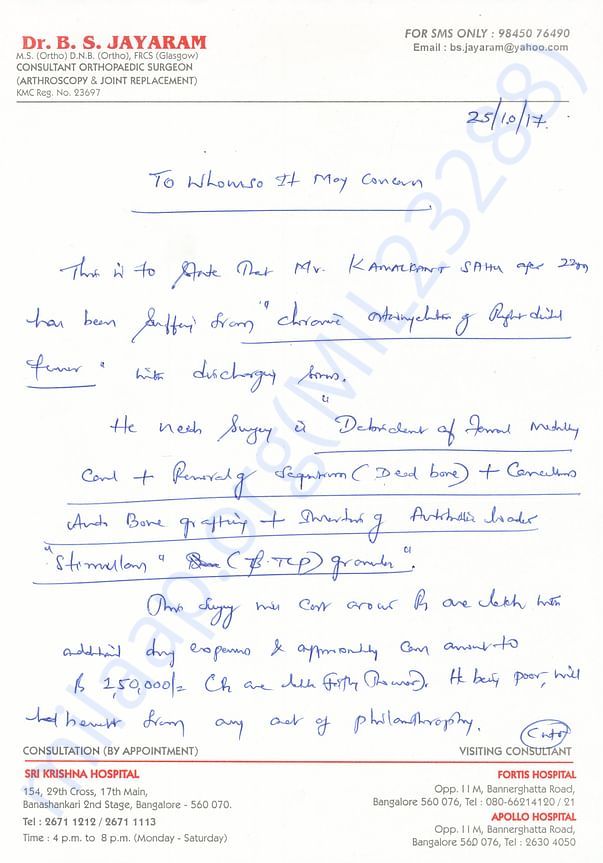 Dr. B. S. JAYARAM
M.S. (Ortho) D.N.B. (Ortho), FRCS (Glasgow)
CONSULTANT ORTHOPAEDIC SURGEON
(ARTHROSCOPY & JOINT REPLACEMENT)
KMC Reg. No. 23697
FOR SMS ONLY : 98450 76490
Email : bs.jayaram@yahoo.com
25/10/17.
To Whomso It May Concern
This is to State That Mr. KAMALKANT SAHU age 22yrs
has been suffering from "chronic osteomyelitis of Right distal
femur" with discharging sinus.
He needs Surgery ie "Debridement of Femoral Medullary
Canal + Removal of Sequestrum (Dead bone) + Cancellous
Auto Bone grafting + Inserting Antibiotic loaded
"Stimulan" (B-TCP) granules".
This surgery will cost around Rs one lakh with
additional drug expenses & approximately can amount to
Rs 1,50,000/= (Rs one lakh fifty thousand). He being poor, will
benefit from any act of philanthropy.
milaap.org(MIL23288)
CONSULTATION (BY APPOINTMENT)
SRI KRISHNA HOSPITAL
154, 29th Cross, 17th Main,
Banashankari 2nd Stage, Bangalore - 560 070.
Tel : 2671 1212 / 2671 1113
Time : 4 p.m. to 8 p.m. (Monday - Saturday)
VISITING CONSULTANT
FORTIS HOSPITAL
Opp. I I M, Bannerghatta Road,
Bangalore 560 076, Tel : 080-66214120 / 21
APOLLO HOSPITAL
Opp. I I M, Bannerghatta Road,
Bangalore 560 076, Tel : 2630 4050